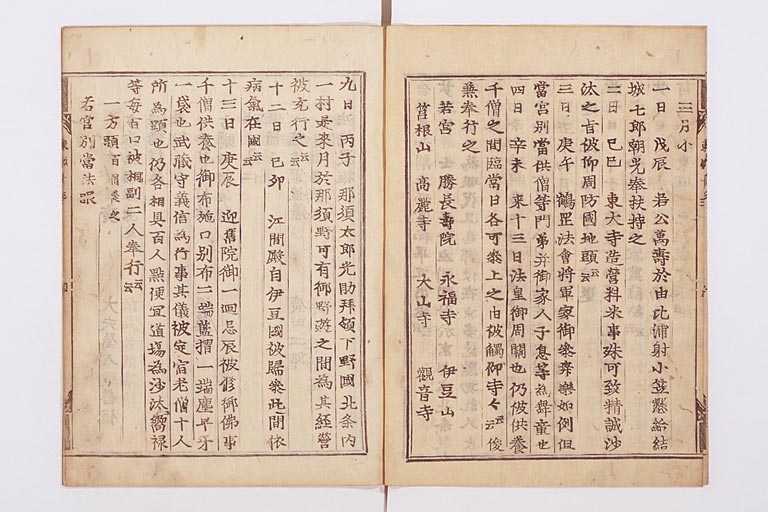 三月小
一日 戊辰 若公萬壽於由比浦射小笠懸給結
城七郎朝光奉扶持之
二日 己巳 東大寺造營料米事殊可致精誠沙
汰之旨被仰周防國地頭云云
三日 庚午 鶴罡法會將軍家御參舞樂如例但
當宮別當供僧等門弟并御家人子息等為舞童也
四日 辛未 來十三日法皇御周闋也仍被供養
千僧之間臨當日各可參上之由被觸仰寺々云云俊
兼奉行之
若宮 勝長壽院 永福寺 伊豆山
筥根山 高麗寺 大山寺 觀音寺
九日 丙子 那須太郎光助拜領下野國北條内
一村是來月於那須野可有御野遊之間為其經營
被充行之云云
十二日 己卯 江間殿自伊豆國被歸參此間依
病氣在國云云
十三日 庚辰 迎舊院御一回忌辰被修御佛事
千僧供養也御布施口別布二端藍摺一端麞牙
一袋也武藏守義信為行事其儀被定宿老僧十人
所為頭也仍各相具百人點便宜道場為沙汰嚫祿
等每百口被相副二人奉行云云
一方頭百相具之
若宮別當法眼